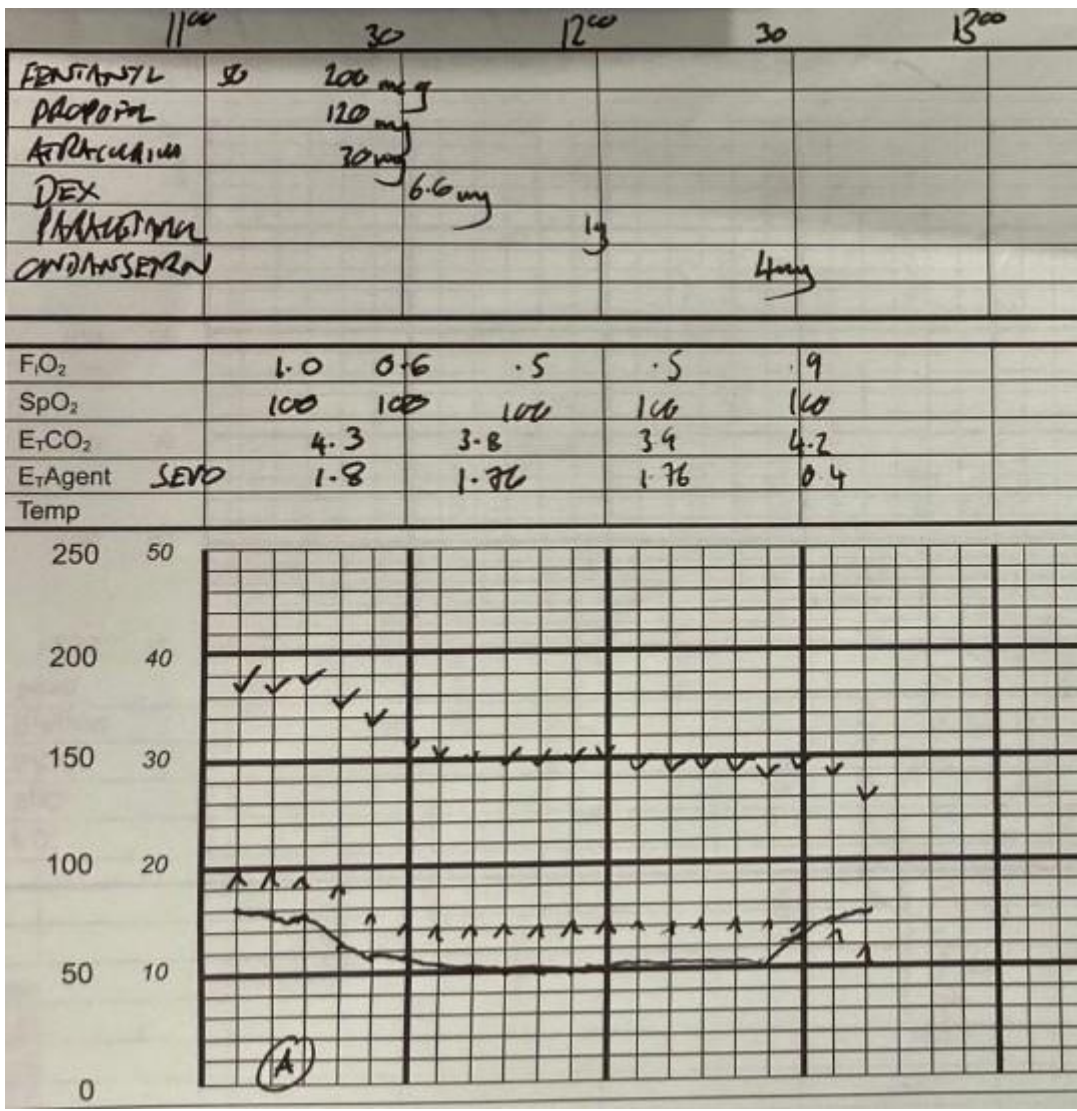 11⁰⁰ 30 12⁰⁰ 30 13⁰⁰
FENTANYL 50 200 mcg
PROPOFOL 120 mg
ATRACURIUM 30 mg
DEX 6.6 mg
PARACETAMOL 1g
ONDANSETRN 4mg
FᵢO₂ 1.0 0.6 .5 .5 .9
SpO₂ 100 100 100 100 100
EᴛCO₂ 4.3 3.8 3.9 4.2
EᴛAgent SEVO 1.8 1.76 1.76 0.4
Temp
250 50
200 40
150 30
100 20
50 10
A
0